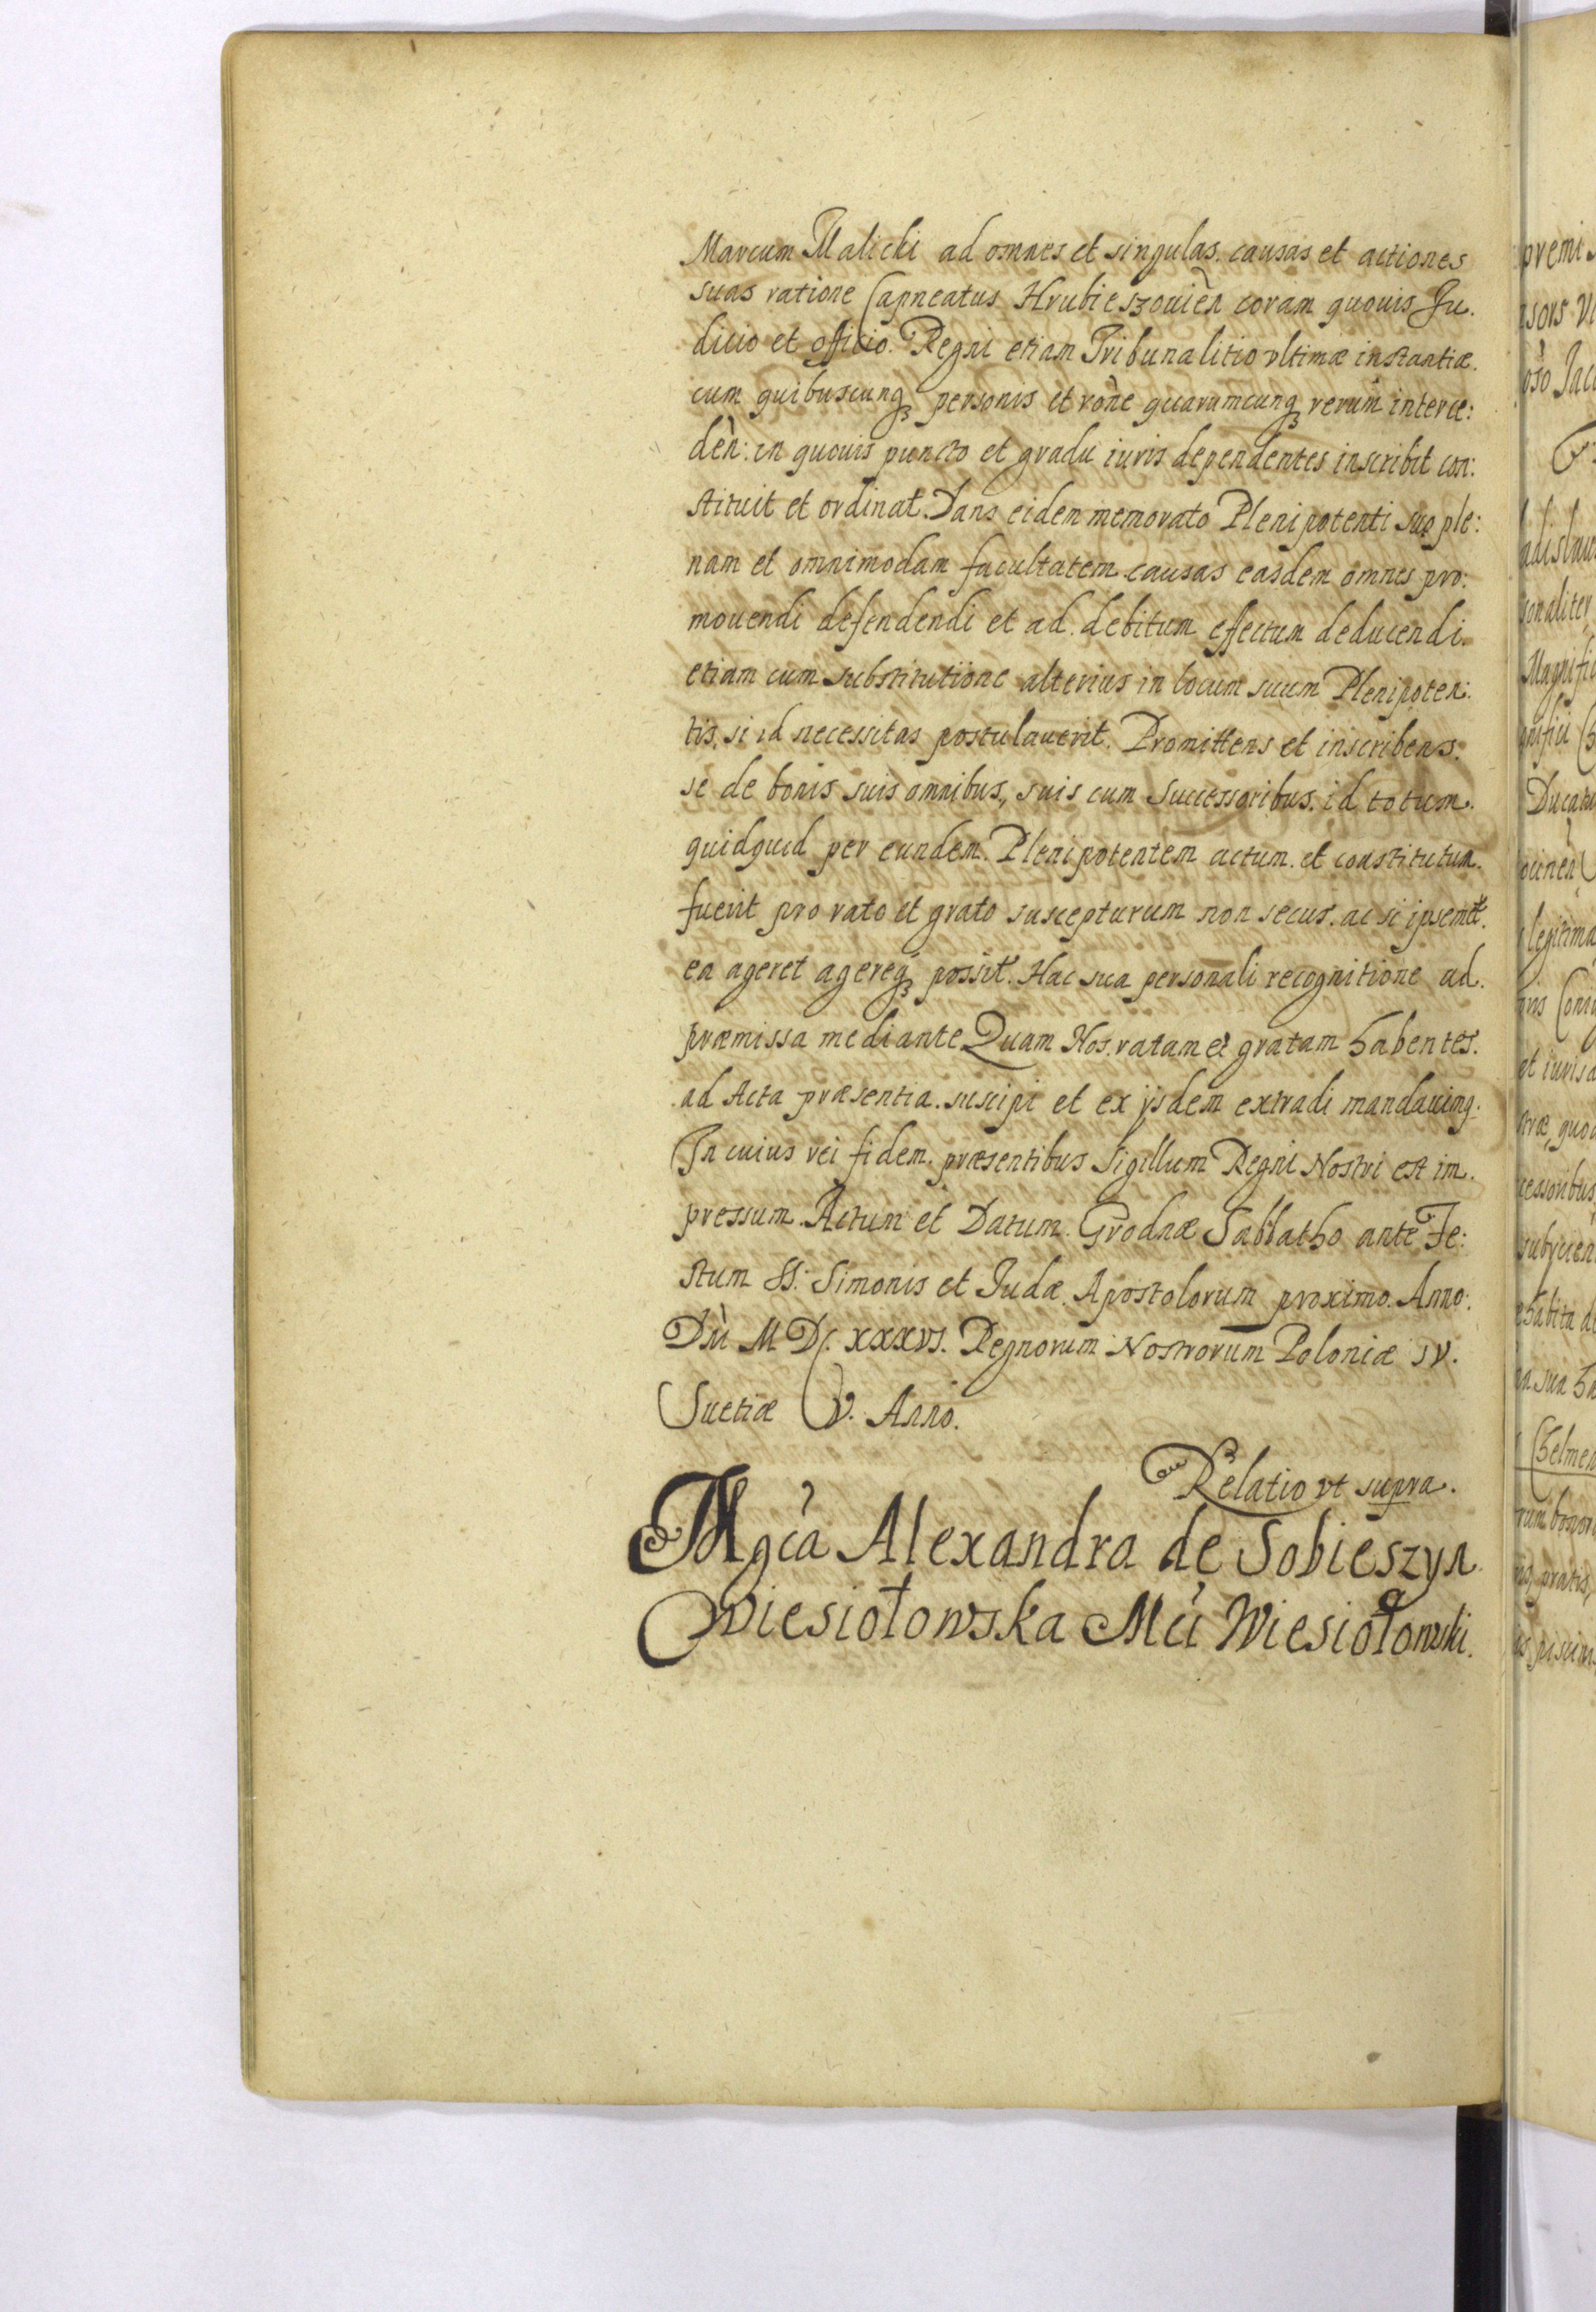 Marcum Malicki ad omnes et singulas causas et actiones
suas ratione Capneatus Hrubieszouień coram quouis Ju.
dicio et officio Regni etiam Tribunalitio vltimæ instantiæ.
cum quibuscunqꝫ personis et rōne quarumcunqꝫ rerum interce:
dèn: in quouis puncto et gradu iuris dependentes inscribit con:
stituit et ordinat. Dans eidem memorato Plenipotenti suo ple:
nam et omnimodam facultatem causas easdem omnes pro:
mouendi defendendi et ad debitum effectum deducendi.
etiam cum substitutione alterius in locum suum Plenipoten:
tis, si id necessitas postulauerit. Promittens et inscribens.
se de bonis suis omnibus, suis cum Successoribus id totum.
quidquid per eundem Plenipotentem actum et constitutum.
fuerit pro rato et grato suscepturum non secus ac si ipsemet.
ea ageret agereqꝫ possit. Hac sua personali recognitione ad.
præmissa mediante Quam Nos ratam et gratam habentes.
ad Acta præsentia suscipi et ex ijsdem extradi mandauimq.
In cuius rei fidem præsentibus Sigillum Regni Nostri est im.
pressum. Actum et Datum Grodnæ Sabbatho ante Fe:
stum SS: Simonis et Judæ Apostolorum proximo Anno:
Dñi M DC. XXXVI. Regnorum Nostrorum Poloniæ IV.
Suetiæ V. Anno.
Relatio vt supra.
Mgcà Alexandra de Sobieszyn
Wiesiołowska Mci Wiesiołowski.